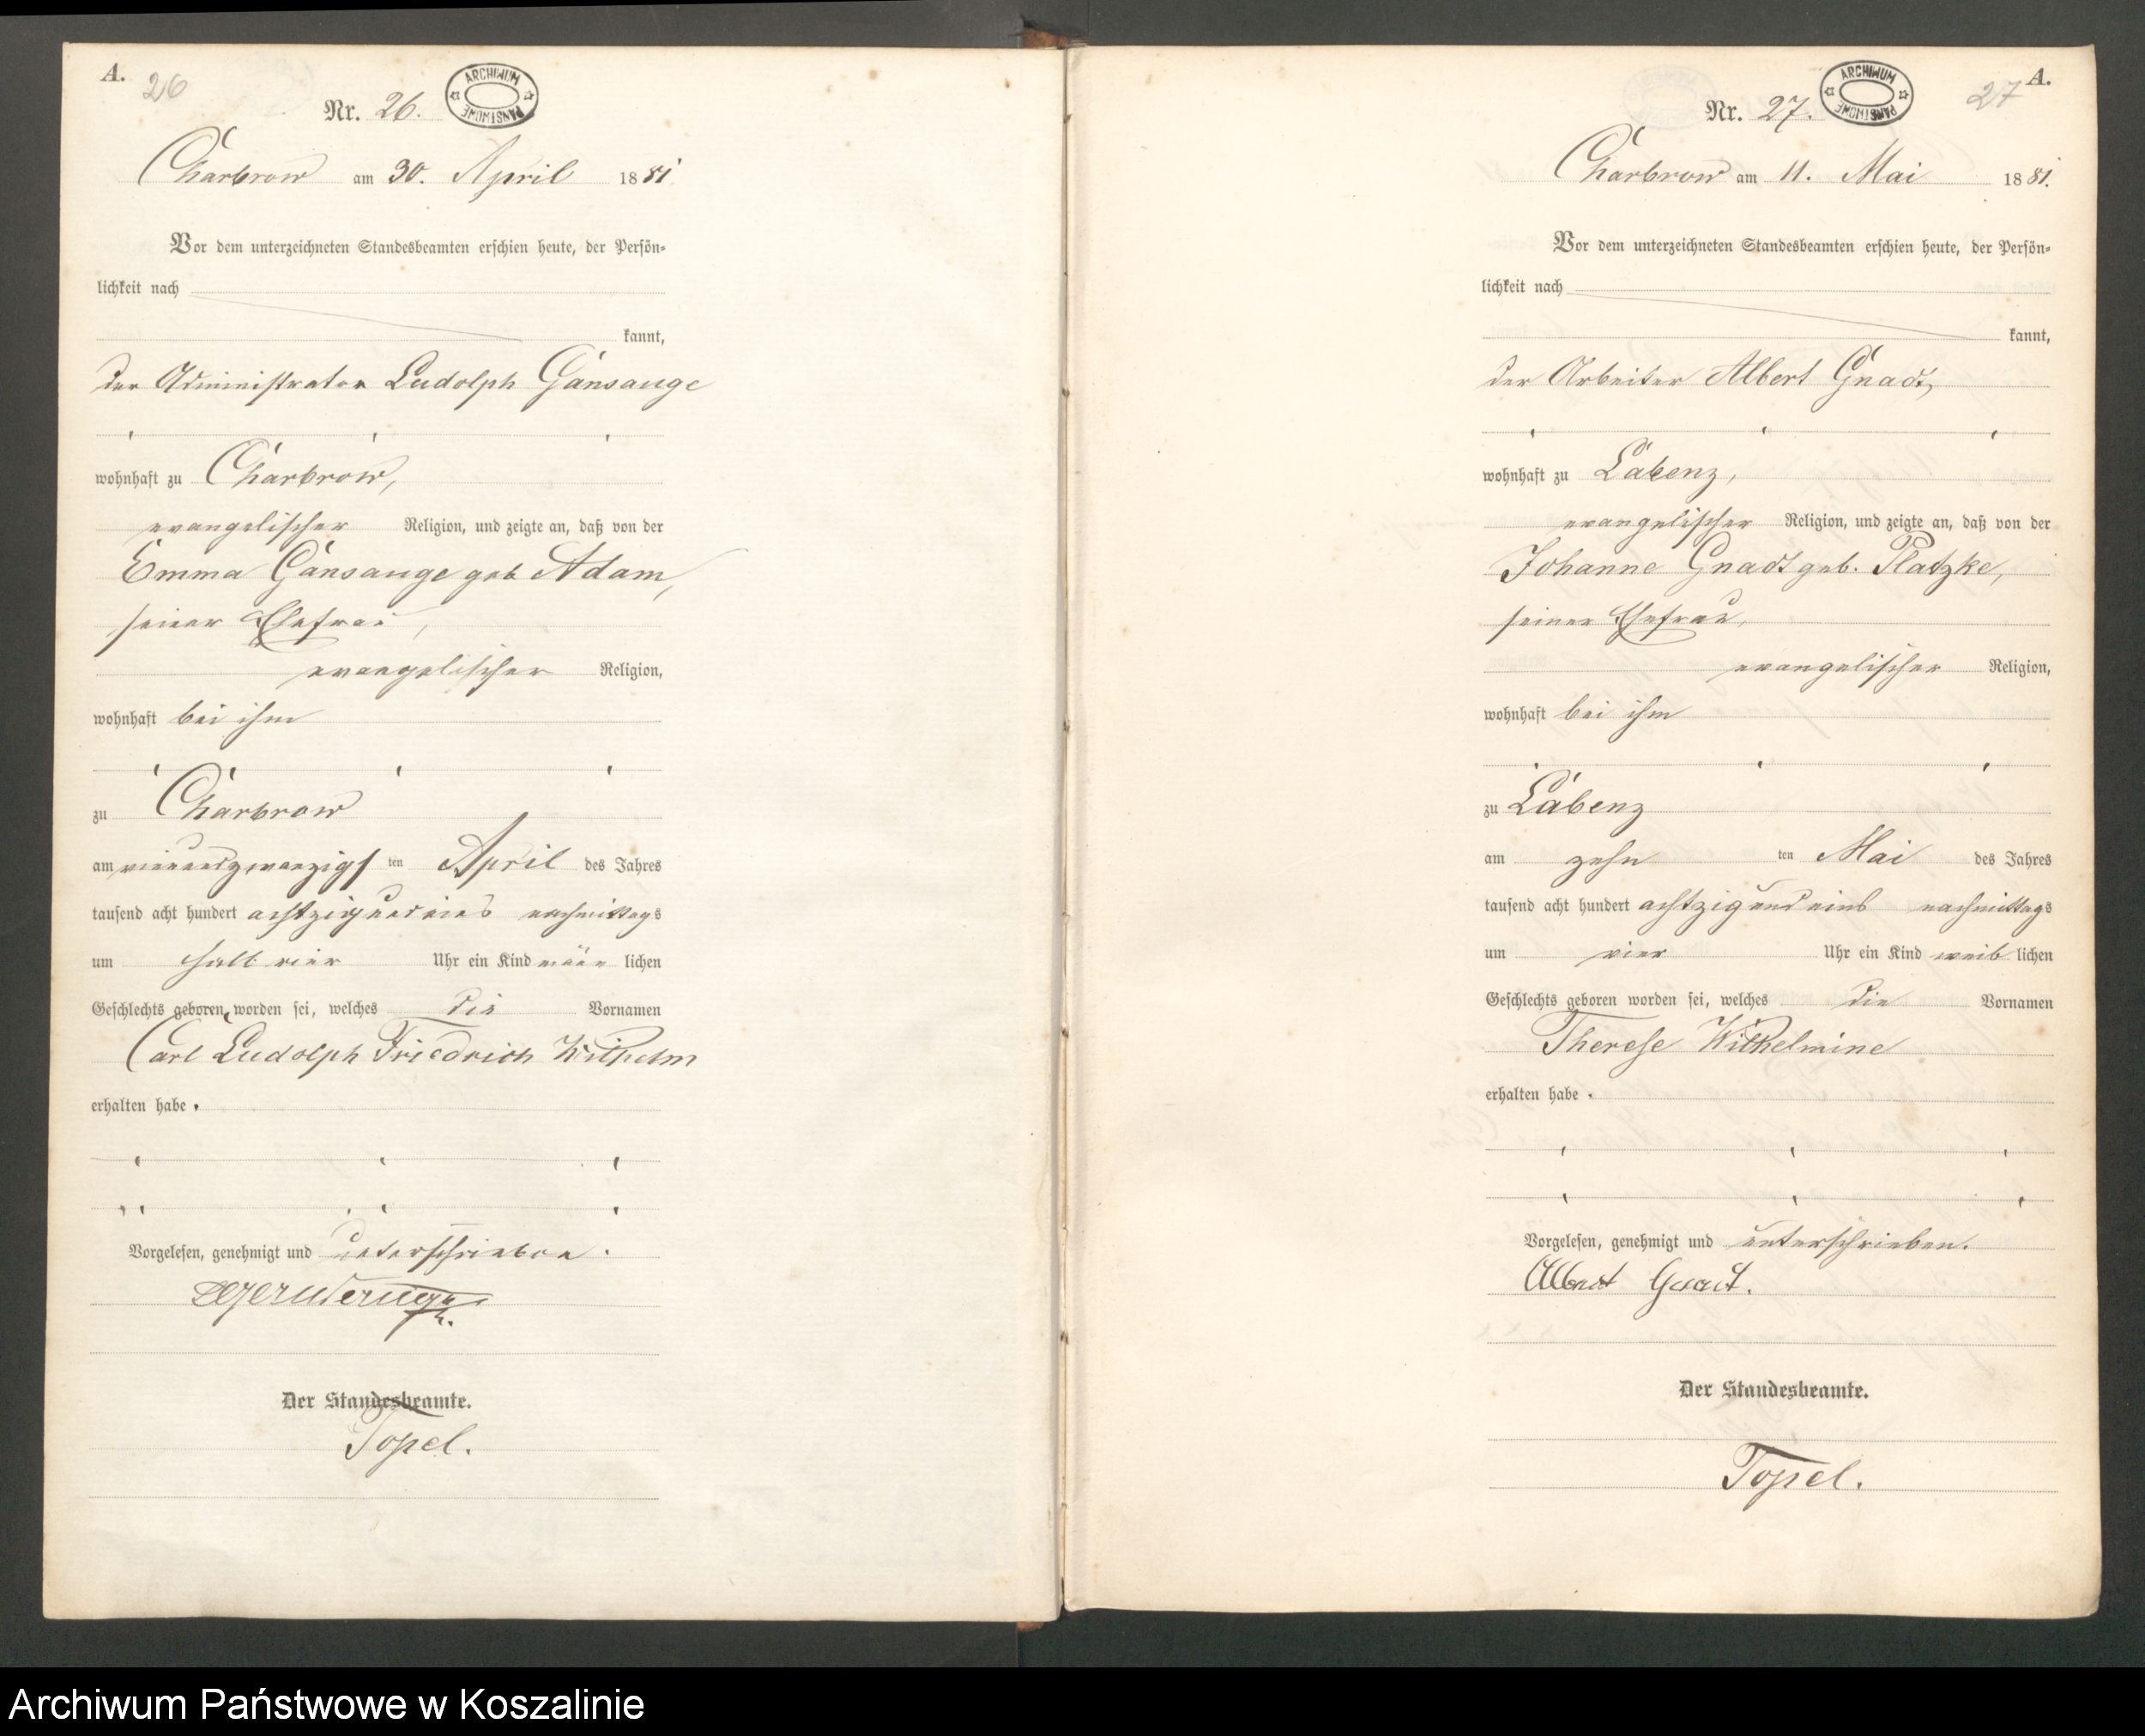 A.
26
Nr. 26.
ARCHIWUM PAŃSTWOWE
Charbrow am 30. April 1881
Vor dem unterzeichneten Standesbeamten erschien heute, der Persön-
lichkeit nach
kannt,
der Administrator Ludolph Gänsauge
wohnhaft zu Charbrow,
evangelischer Religion, und zeigte an, daß von der
Emma Gänsauge geb Adam,
seiner Ehefrau,
evangelischer Religion,
wohnhaft bei ihm
zu Charbrow
am vierundzwanzigsten April des Jahres
tausend acht hundert achtzigundeins nachmittags
um halb vier Uhr ein Kind männlichen
Geschlechts geboren worden sei, welches die Vornamen
Carl Ludolph Friedrich Wilhelm
erhalten habe.
Vorgelesen, genehmigt und unterschrieben.
Der Standesbeamte.
Topel.
A.
27
Nr. 27.
ARCHIWUM PAŃSTWOWE
Charbrow am 11. Mai 1881.
Vor dem unterzeichneten Standesbeamten erschien heute, der Persön-
lichkeit nach
kannt,
der Arbeiter Albert Gnadt,
wohnhaft zu Labenz,
evangelischer Religion, und zeigte an, daß von der
Johanne Gnadt geb. Platzke,
seiner Ehefrau,
evangelischer Religion,
wohnhaft bei ihm
zu Labenz
am zehnten Mai des Jahres
tausend acht hundert achtzigundeins nachmittags
um vier Uhr ein Kind weiblichen
Geschlechts geboren worden sei, welches die Vornamen
Therese Wilhelmine
erhalten habe.
Vorgelesen, genehmigt und unterschrieben.
Albert Gnadt.
Der Standesbeamte.
Topel.
Archiwum Państwowe w Koszalinie